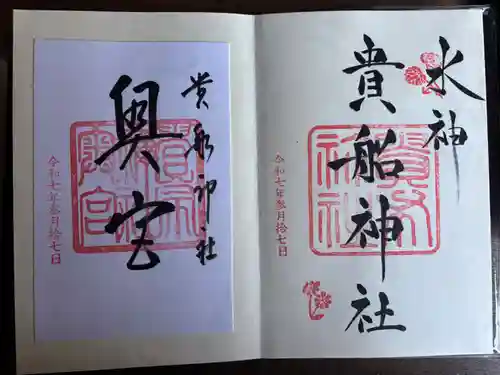 水神
貴船神社
令和七年参月拾七日
貴船神社
奥宮
令和七年参月拾七日